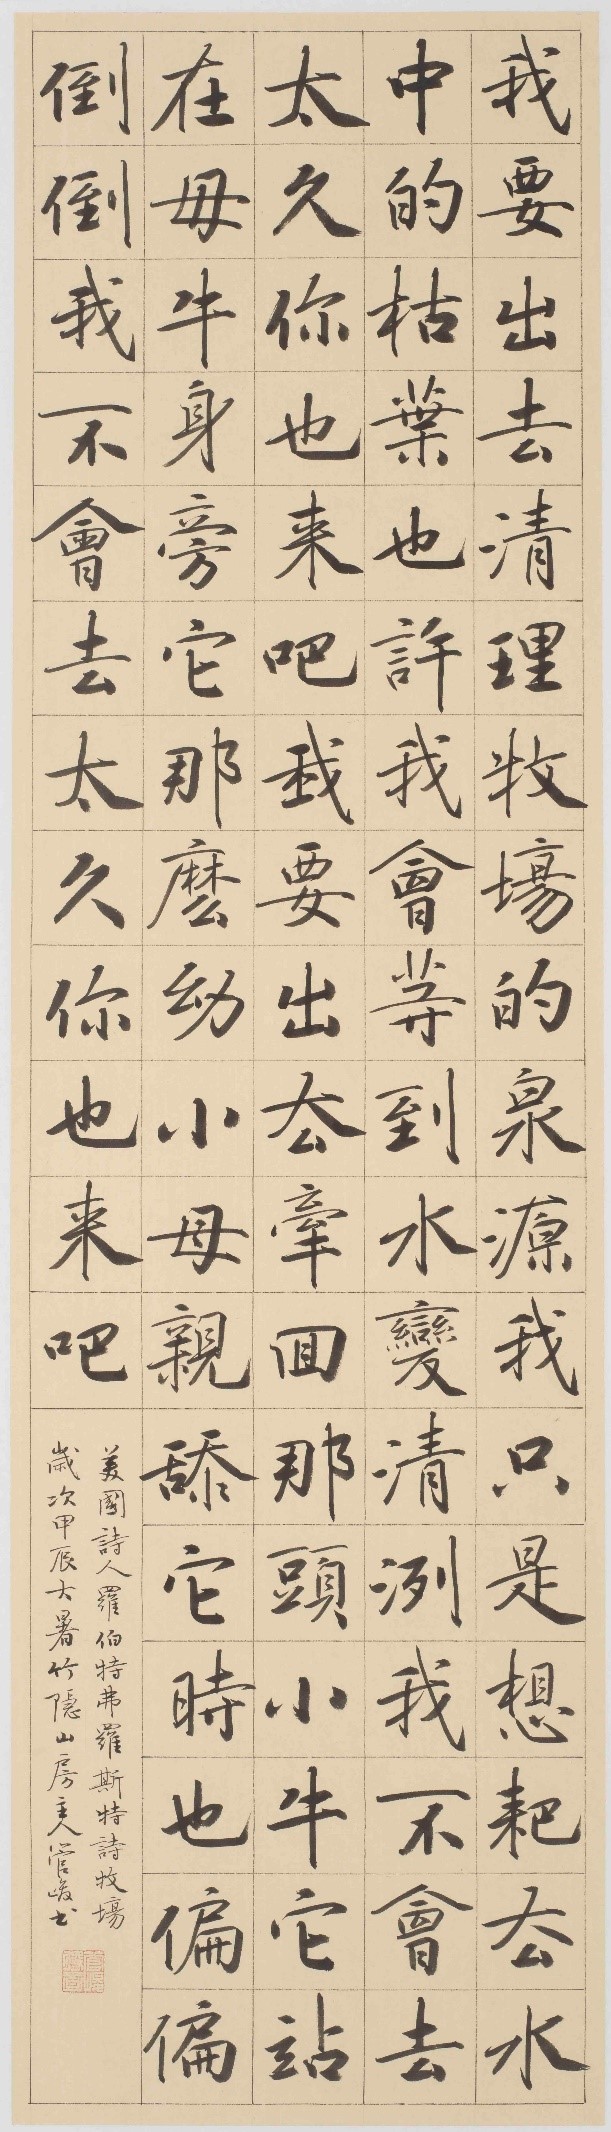 我要出去清理牧場的泉源我只是想耙去水
中的枯葉也許我會等到水變清洌我不會去
太久你也来吧我要出去牽回那頭小牛它站
在母牛身旁它那麽幼小母親舔它時也偏偏
倒倒我不會去太久你也来吧
美國詩人羅伯特弗羅斯特詩牧場
歲次甲辰大暑竹隱山房主人管峻书